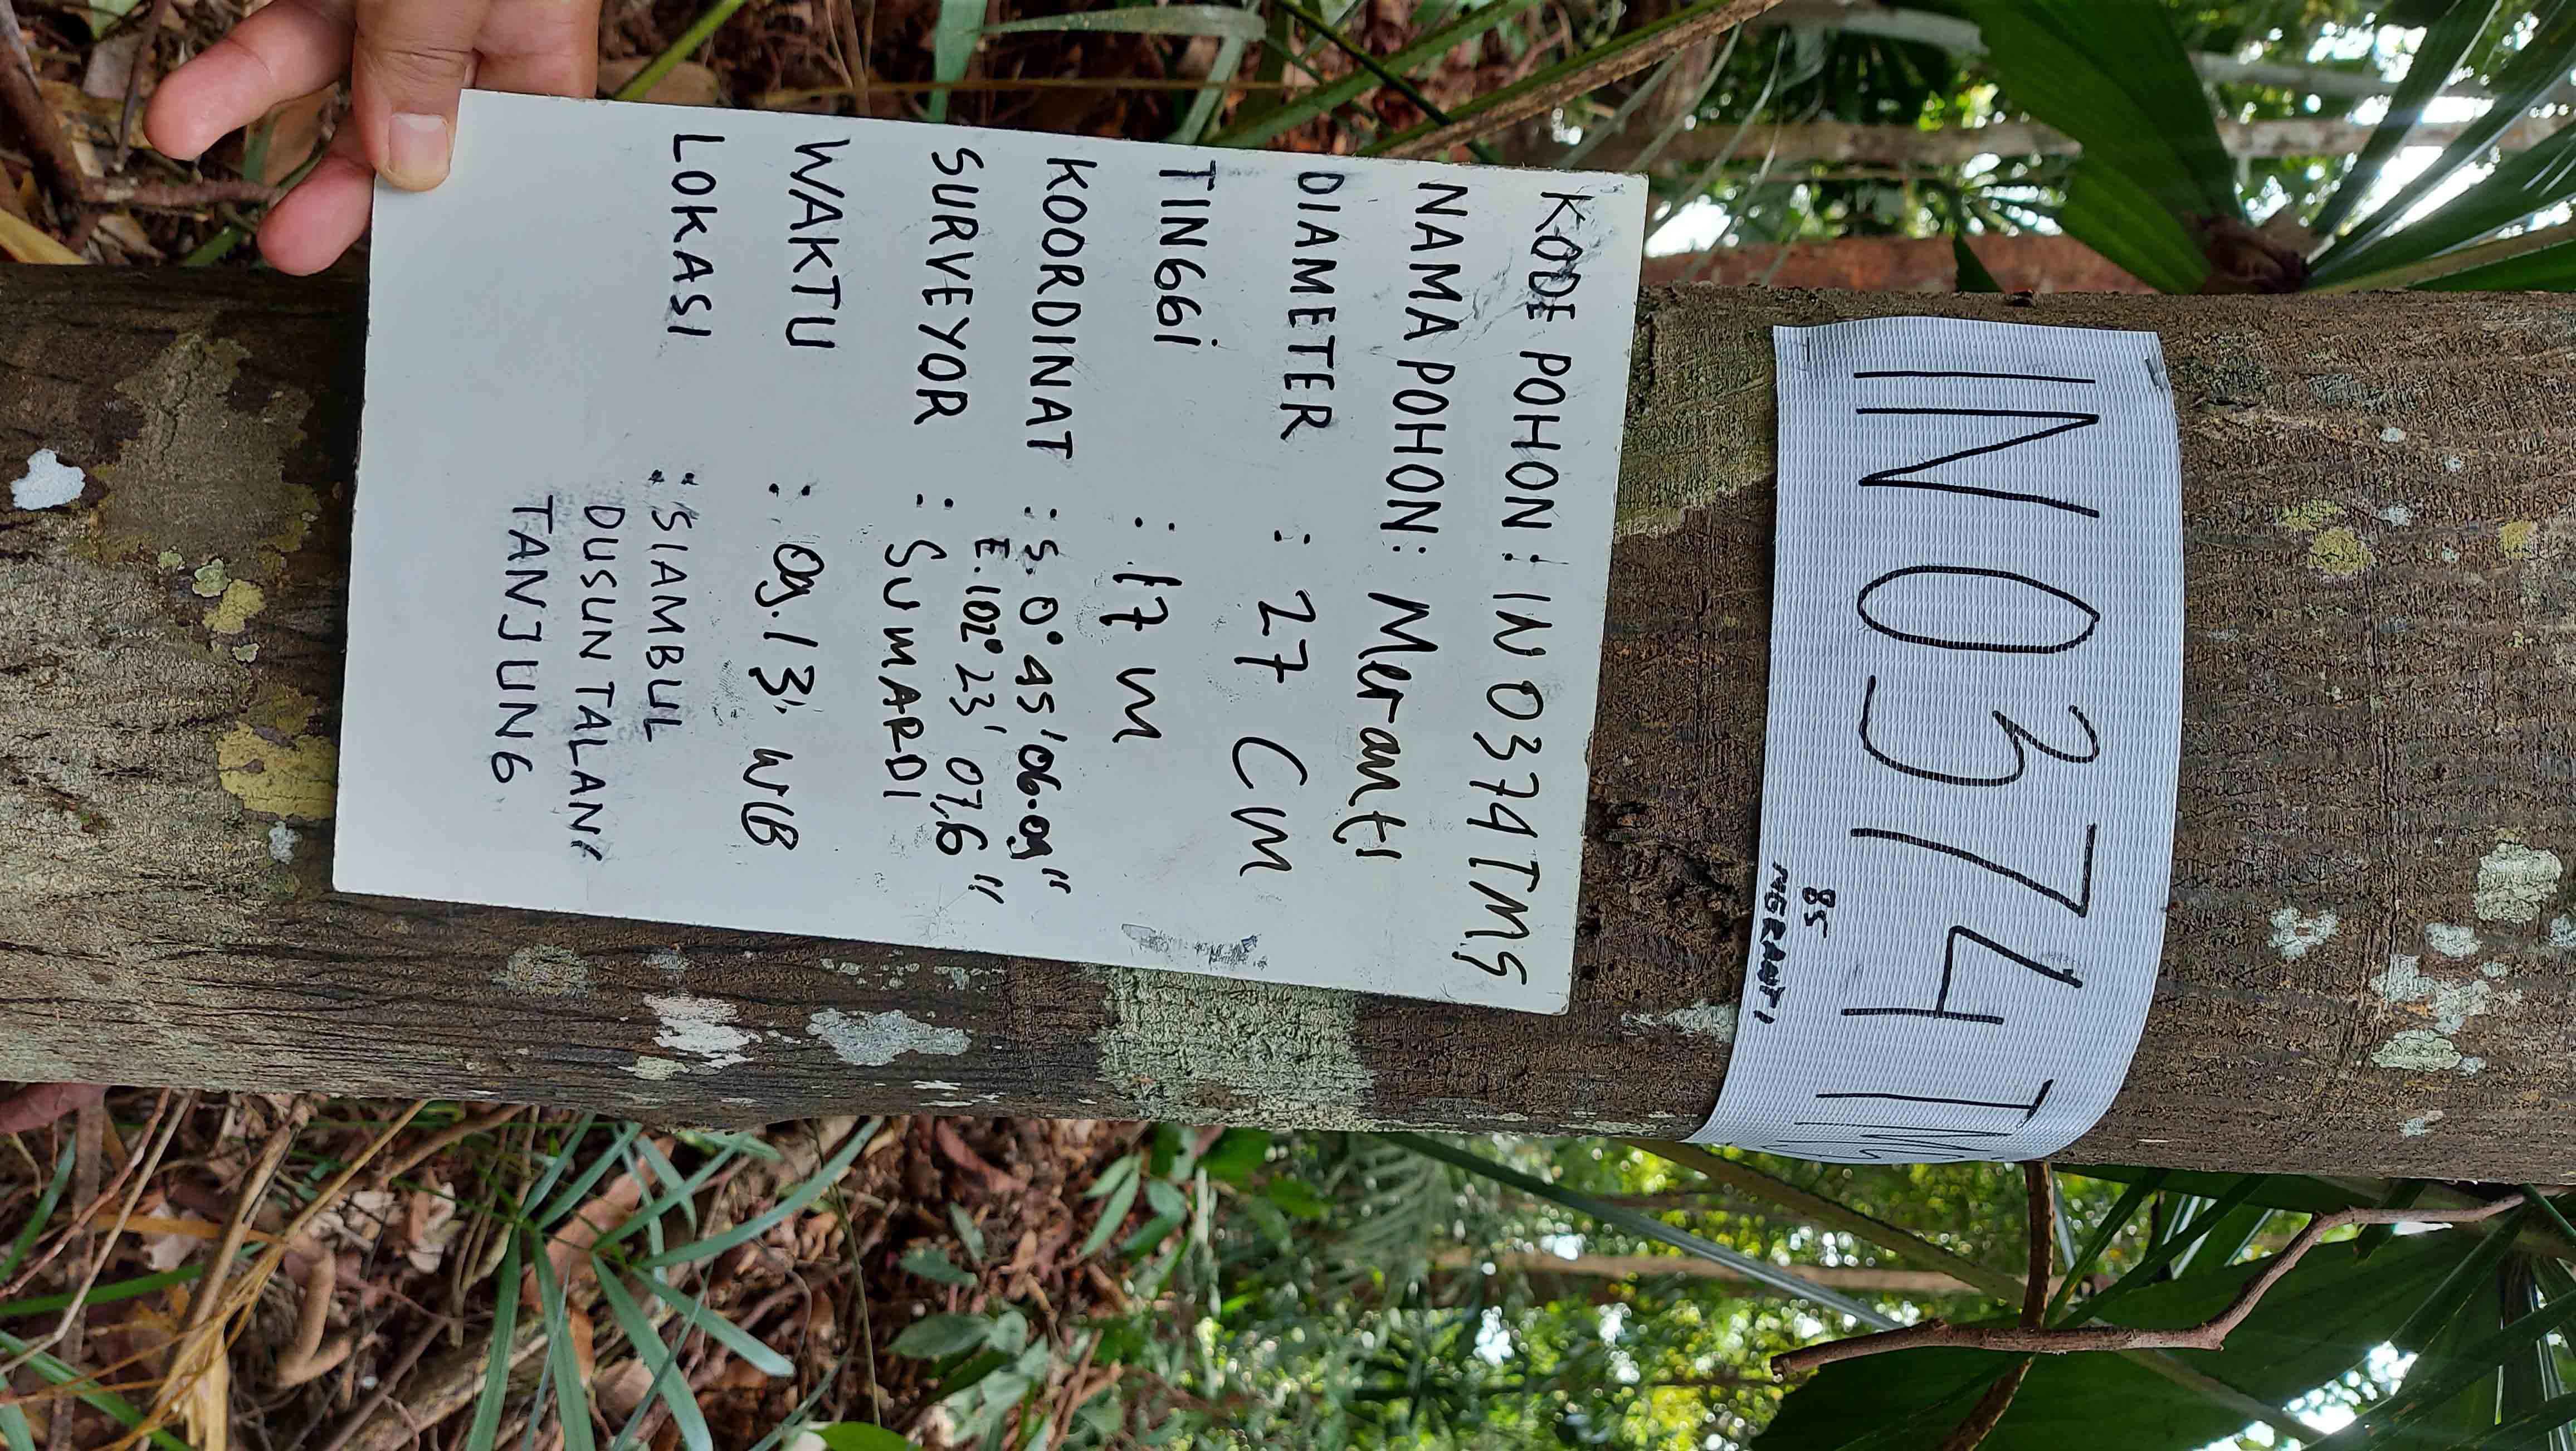 IN 0374 TMS
85
MERANTI
KODE POHON : IN 0374 TMS
NAMA POHON : Meranti
DIAMETER : 27 Cm
TINGGI : 17 m
KOORDINAT : S. 0° 45' 06.09"
E. 102° 23' 07,6"
SURVEYOR : SUMARDI
WAKTU : 09.13' WIB
LOKASI : SIAMBUL
DUSUN TALANG
TANJUNG